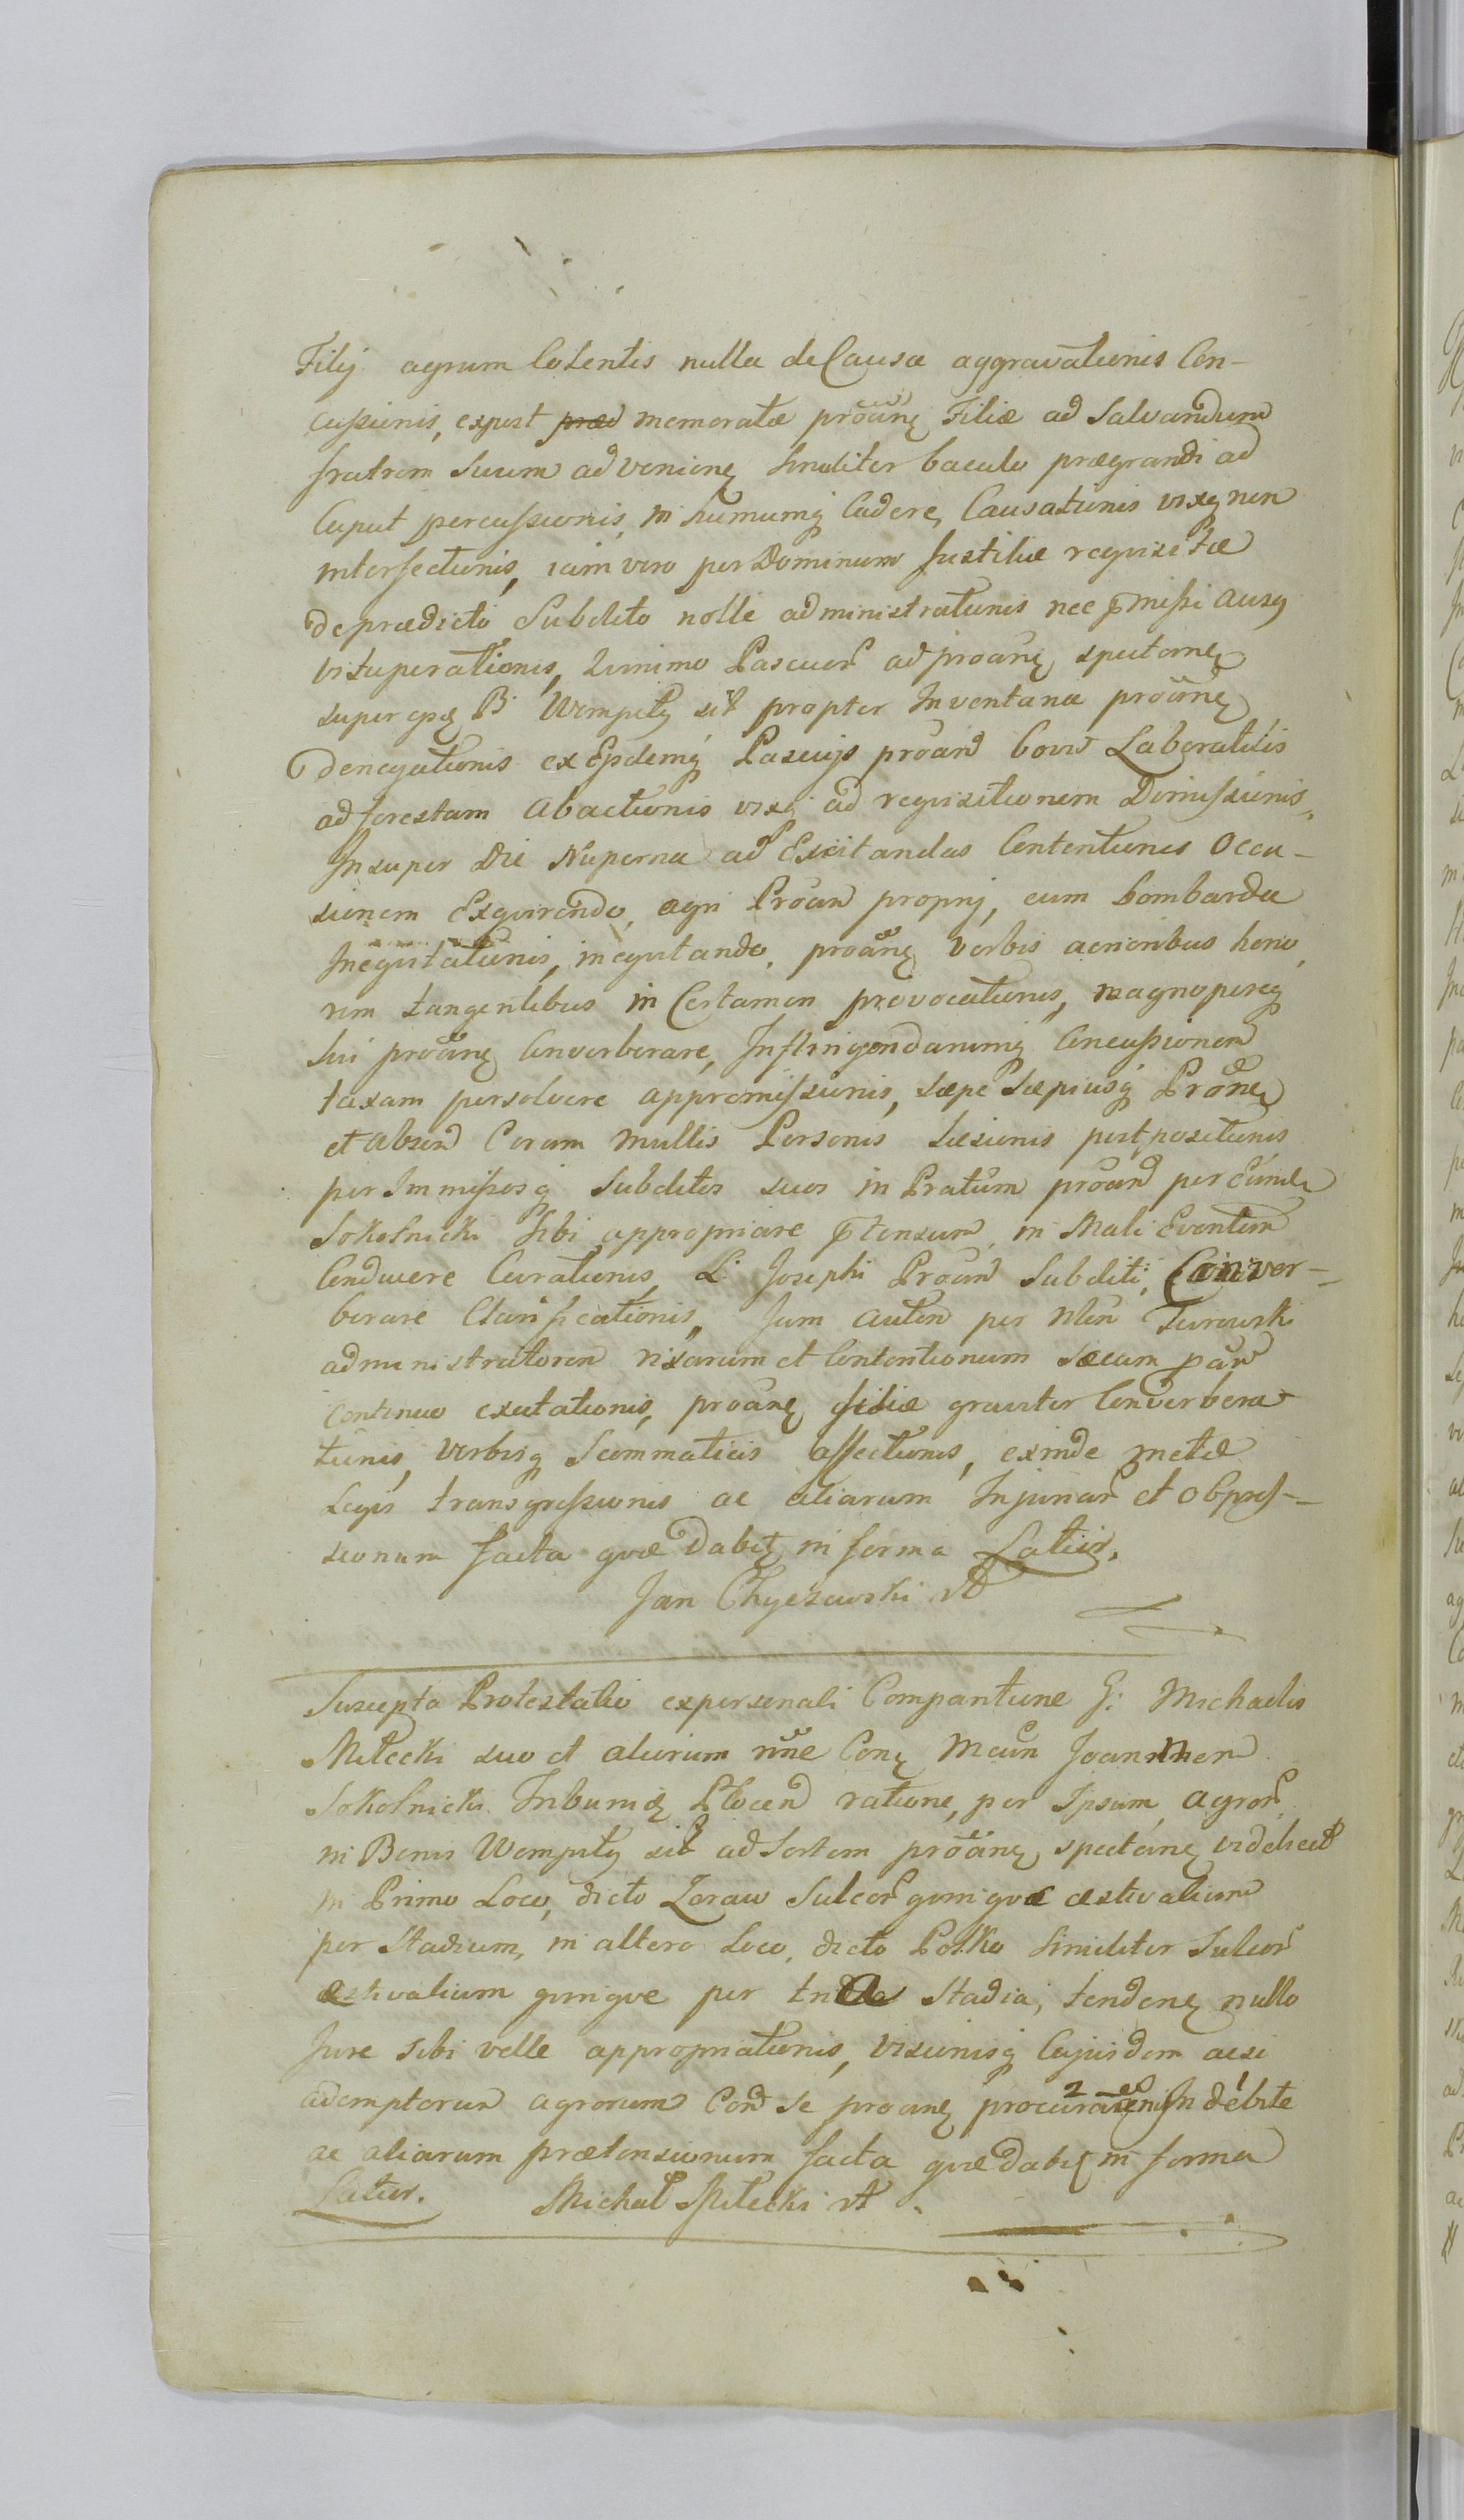 Filij agrum Colentis nulla de Causa aggravationis Con-
cussionis, expost præd memoratæ proãnę Filiæ ad Salvandum
fratrem Suum advenienę similiter baculo prægrandi ad
Caput percussionis, in humumq Cadere, Causationis vixq non
interfectionis, iam vero per Dominum Justitiæ requisitæ
de prædicto Subdito nolle administrationis nec pmissi ausq
vituperationis, Pascuor ad proanę spectanę
super B. Wempiły sit propter Inventana proanę
denegationis ex Epdemq Pascuijs proand boum Laboratilis
ad forestam abactionis vixq ad requisitionem Dimissionis,
Insuper Die Nuperna ad Excitandas Contentiones Occa-
sionem Exquirendo, agri Proand proprij, cum bombarda
Inequitationis, inequitando, proanę verbis acrioribus hono,
rem tangentibus in Certamen provocationis, magnopereq
sui proanę Converberare, Infringendarumq Concussionem
taxam persolvere appromissionis, sæpe Sæpiusq Pronę
et absend Coram multis Personis Læsionis postpositionis
per Immissosq Subditos suos in Pratum proand per eund
Sokolnicki Sibi appropriare ptensum, in Mali Eventum
Conducere Curationis, L: Josephi Proand Subditi, Conver-
berare Clarificationis, Jam autem per Mĩn Turowski
administratorem rixarum et Contentionum sæcum
continuo excitationis, proanę filiæ graviter Converbera-
tionis, verbisq Scommaticis affectionis, exinde metæ
Legis transgressionis ac aliarum Injuriar et Obpres-
sionum facta quæ dabit in forma Latior.
Jan Chyczewski

Suscepta Protestatio ex personali Comparitione G: Michaelis
Miłecki suo et aliorum nne Conę Joannem
Sokolnicki Tribunidę Płocend ratione, per Ipsum, agror
in Bonis Wempiły sit ad Sortem proanę spectanę videlicet
in Primo Loco, dicto Zoraw Sulcor quinque æstivalium
per Stadium, in altero Loco, dicto Polko similiter Sulcor
æstivalium quinque per tria Stadia, tendenę nullo
Jure sibi velle appropriationis, visionisq Cujusdem acsi
ademptorum agrorum Cord se proanę procurationis Indebite
ac aliarum prætensionum facta quæ dabit in forma
Latior. Michał Miłecki